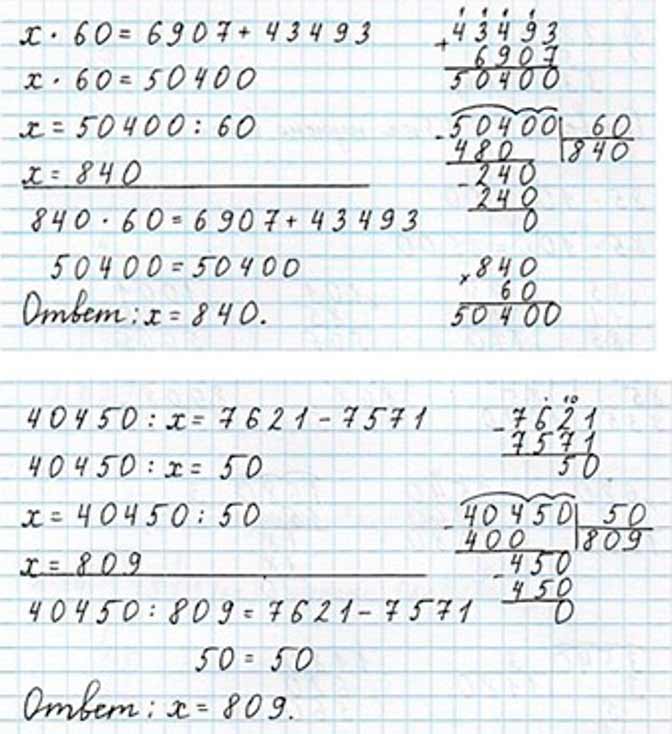 x · 60 = 6907 + 43493
x · 60 = 50400
x = 50400 : 60
x = 840
840 · 60 = 6907 + 43493
50400 = 50400
Ответ: x = 840.
+ 43493
6907
50400
- 50400 | 60
480 | 840
- 240
240
0
× 840
60
50400
40450 : x = 7621 - 7571
40450 : x = 50
x = 40450 : 50
x = 809
40450 : 809 = 7621 - 7571
50 = 50
Ответ: x = 809.
10
- 7621
7571
50
- 40450 | 50
400 | 809
- 450
450
0